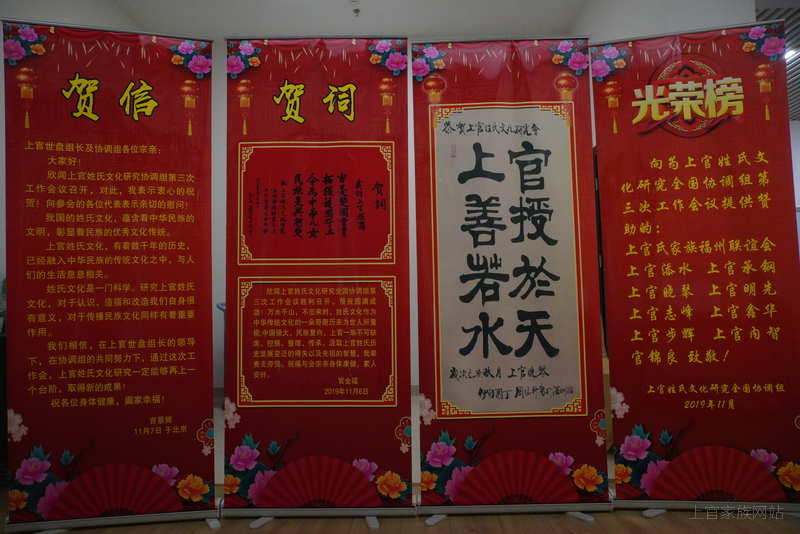 贺信
上官世盘组长及协调组各位宗亲:
大家好!
欣闻上官姓氏文化研究协调组第三次
工作会议召开,对此,我表示衷心的祝
贺!向参会的各位代表表示亲切的慰问!
我国的姓氏文化,蕴含着中华民族的
文明,彰显着民族的优秀文化传统。
上官姓氏文化,有着数千年的历史,
已经融入中华民族的传统文化之中,与人
们的生活息息相关。
姓氏文化是一门科学。研究上官姓氏
文化,对于认识、
和改造我们自身很
有意义,对于传播民族文化同样有着重要
作用。
我们相信,在上官世盘组长的领导
下,在协调组的共同努力下,通过这次工
作会,上官姓氏文化研究一定能够再上一
个台阶,取得新的成果!
祝各位身体健康,阖家幸福!
11月7日 于北京
贺词
贺词
欣闻上官姓氏文化研究全国协调组第
三次工作会议胜利召开,预祝圆满成
功!万水千山,不忘来时,姓氏文化作为
中华传统文化的一朵奇葩历史为世人所重
视,中国强大,民族复兴,上官一族不可缺
席,挖掘、整理、传承,汲取上官姓氏历
安好!
官金福
2019年11月6日
恭贺上官姓氏文化研究会
上善若水
官授於天
上官晓琴
光荣榜
向为上官姓氏文
化研究全国协调组第
三次工作会议提供赞
助的:
上官氏家族福州联谊会
上官添水 上官承钢
上官晓琴 上官明先
上官志峰 上官鑫华
上官步辉 上官内智
官锦良 致敬!
上官姓氏文化研究全国协调组
2019年11月
上官家族网站